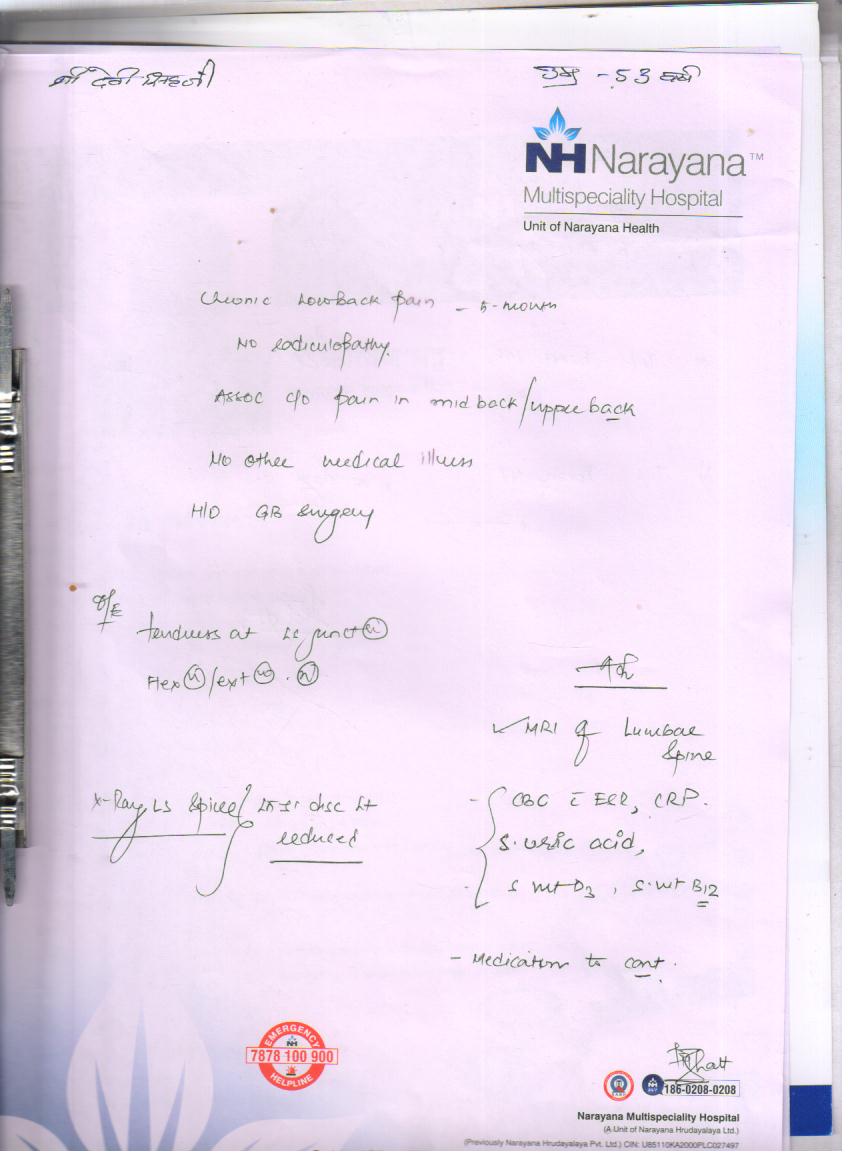 श्री देवी सिंहजी
उम्र - 53 वर्ष
NH Narayana™
Multispeciality Hospital
Unit of Narayana Health
Chronic Lowback pain - 5-month
No radiculopathy.
Assoc c/o pain in mid back/upper back
No other medical illness
H/O GB surgery
O/E
tenderness at LS junct
Flex /ext
Adv
✓ MRI of Lumbar
Spine
X-Ray LS Spine disc ht
reduced
- CBC c̄ ESR, CRP.
S. uric acid,
S. vit D3, S. vit B12
- Medication to cont.
EMERGENCY
NH
7878 100 900
HELPLINE
Bhatt
186-0208-0208
Narayana Multispeciality Hospital
(A Unit of Narayana Hrudayalaya Ltd.)
(Previously Narayana Hrudayalaya Pvt. Ltd.) CIN: U85110KA2000PLC027497